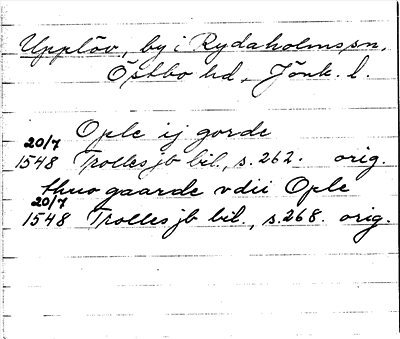 Upplöv, by i Rydaholms sn,
Östbo hd, Jönk. l.
Ople ij gorde
20/7
1548 Trolles jb bil., s. 262. orig.
thuo gaarde vdii Ople
20/7
1548 Trolles jb bil., s. 268. orig.